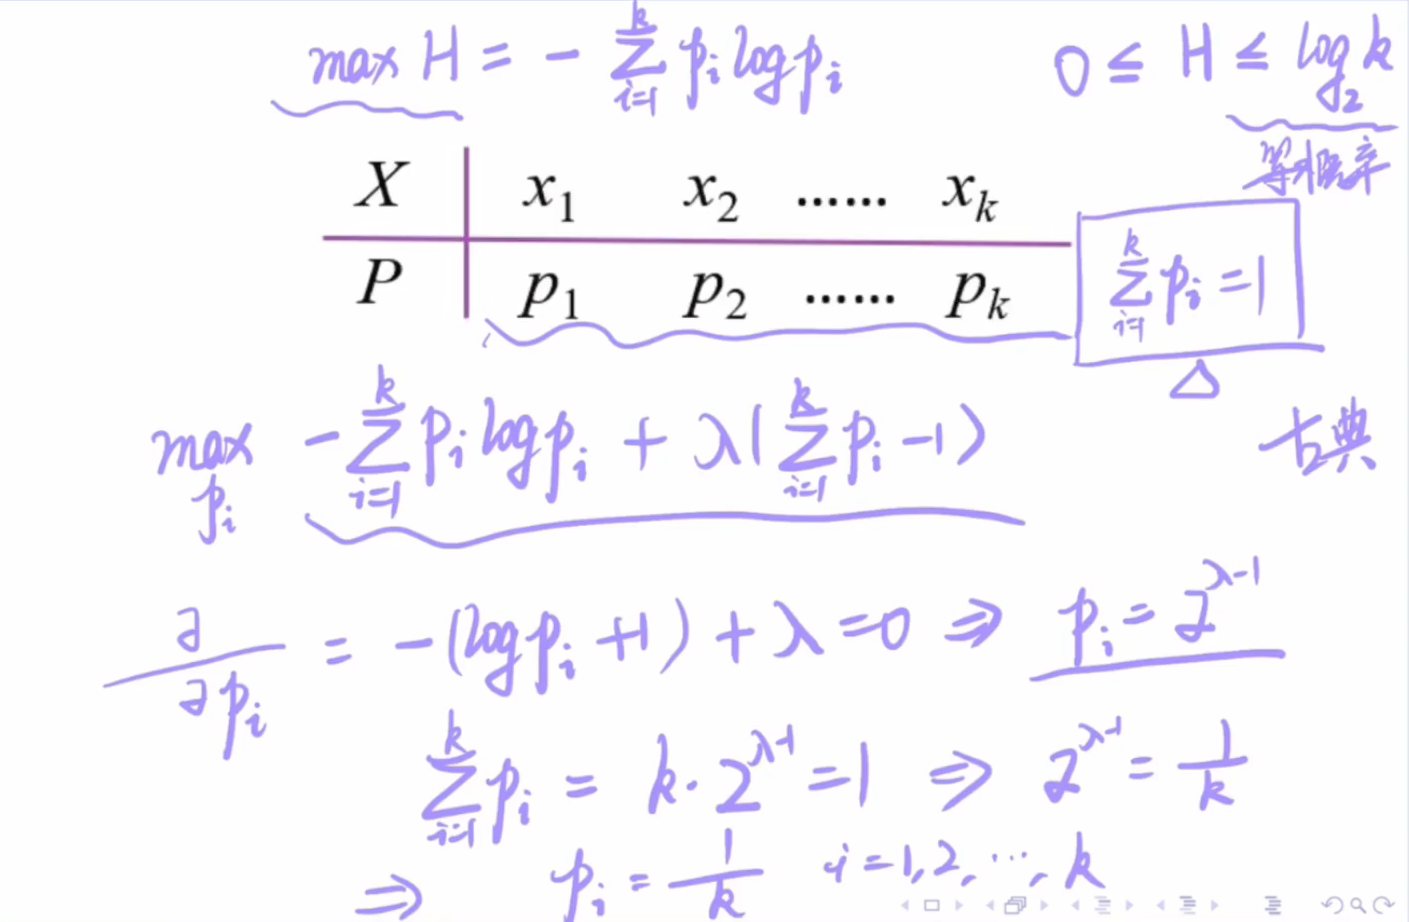 max H = - ∑_{i=1}^{k} p_i log p_i 0 ≤ H ≤ log_2 k
等概率
X x_1 x_2 …… x_k
P p_1 p_2 …… p_k ∑_{i=1}^{k} p_i = 1
Δ
max_{p_i} - ∑_{i=1}^{k} p_i log p_i + λ(∑_{i=1}^{k} p_i - 1) 古典
∂/∂p_i = -(log p_i + 1) + λ = 0 ⇒ p_i = 2^{λ-1}
∑_{i=1}^{k} p_i = k · 2^{λ-1} = 1 ⇒ 2^{λ-1} = 1/k
⇒ p_i = 1/k i = 1, 2, ⋯, k